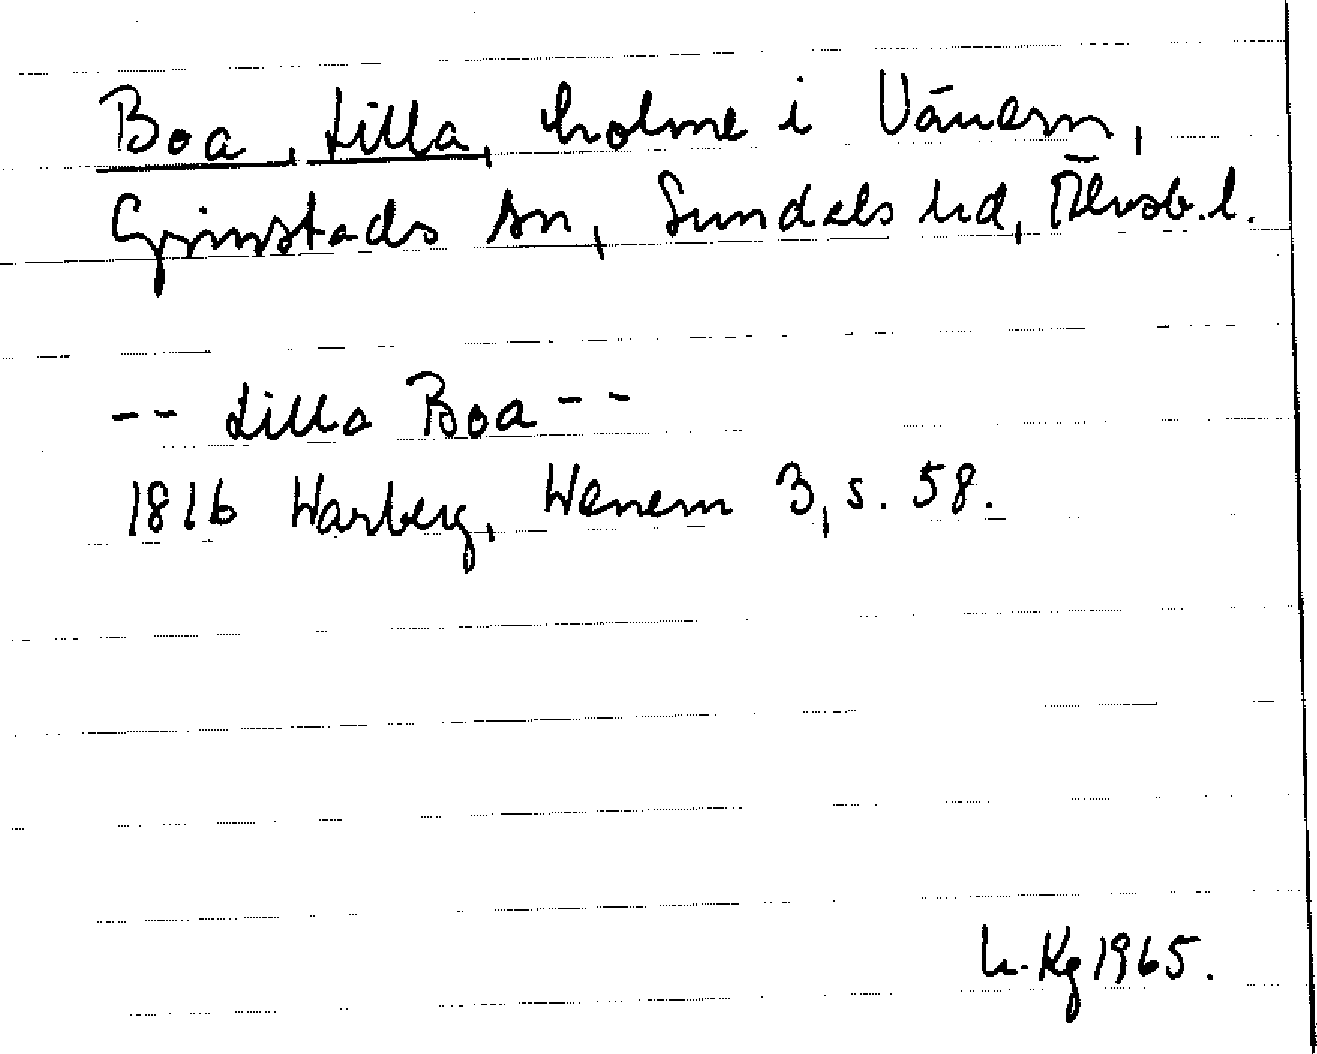 Boa, Lilla, holme i Vänern,
Grinstads sn, Sundals hd, Älvsb. l.
-- Lilla Boa --
1816 Warberg, Wenern 3, s. 58.
h. Kg 1965.